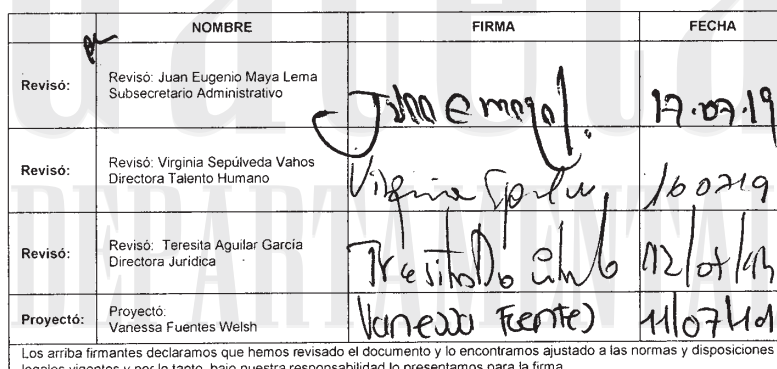 NOMBRE FIRMA FECHA
Revisó: Revisó: Juan Eugenio Maya Lema
Subsecretario Administrativo
17.07.19
Revisó: Revisó: Virginia Sepúlveda Vahos
Directora Talento Humano
Virginia 160719
Revisó: Revisó: Teresita Aguilar García
Directora Jurídica
12/07/19
Proyectó: Proyectó:
Vanessa Fuentes Welsh
Vanessa Fuentes 11/07/19
Los arriba firmantes declaramos que hemos revisado el documento y lo encontramos ajustado a las normas y disposiciones
legales vigentes y por lo tanto, bajo nuestra responsabilidad lo presentamos para la firma.
DEPARTAMENTAL